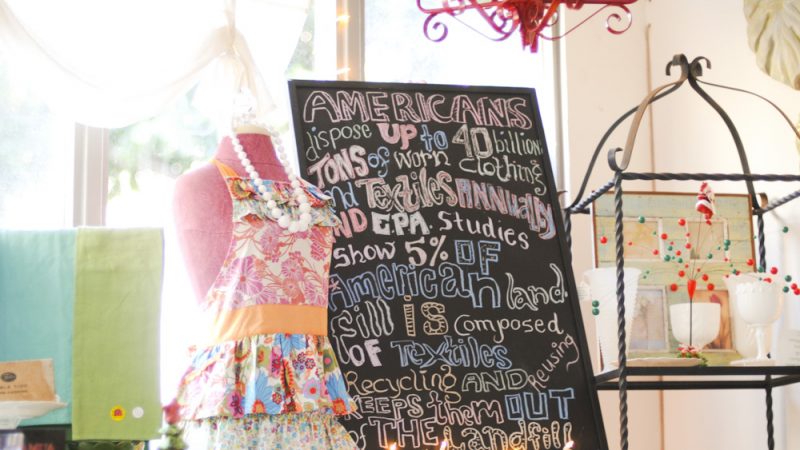 AMERICANS
dispose UP to 40 billion
TONS of worn clothing
and Textiles ANNUALLY
AND E.P.A. Studies
Show 5% OF
American land
fill IS Composed
OF Textiles
Recycling AND Reusing
KEEPS them OUT
OF THE Landfill